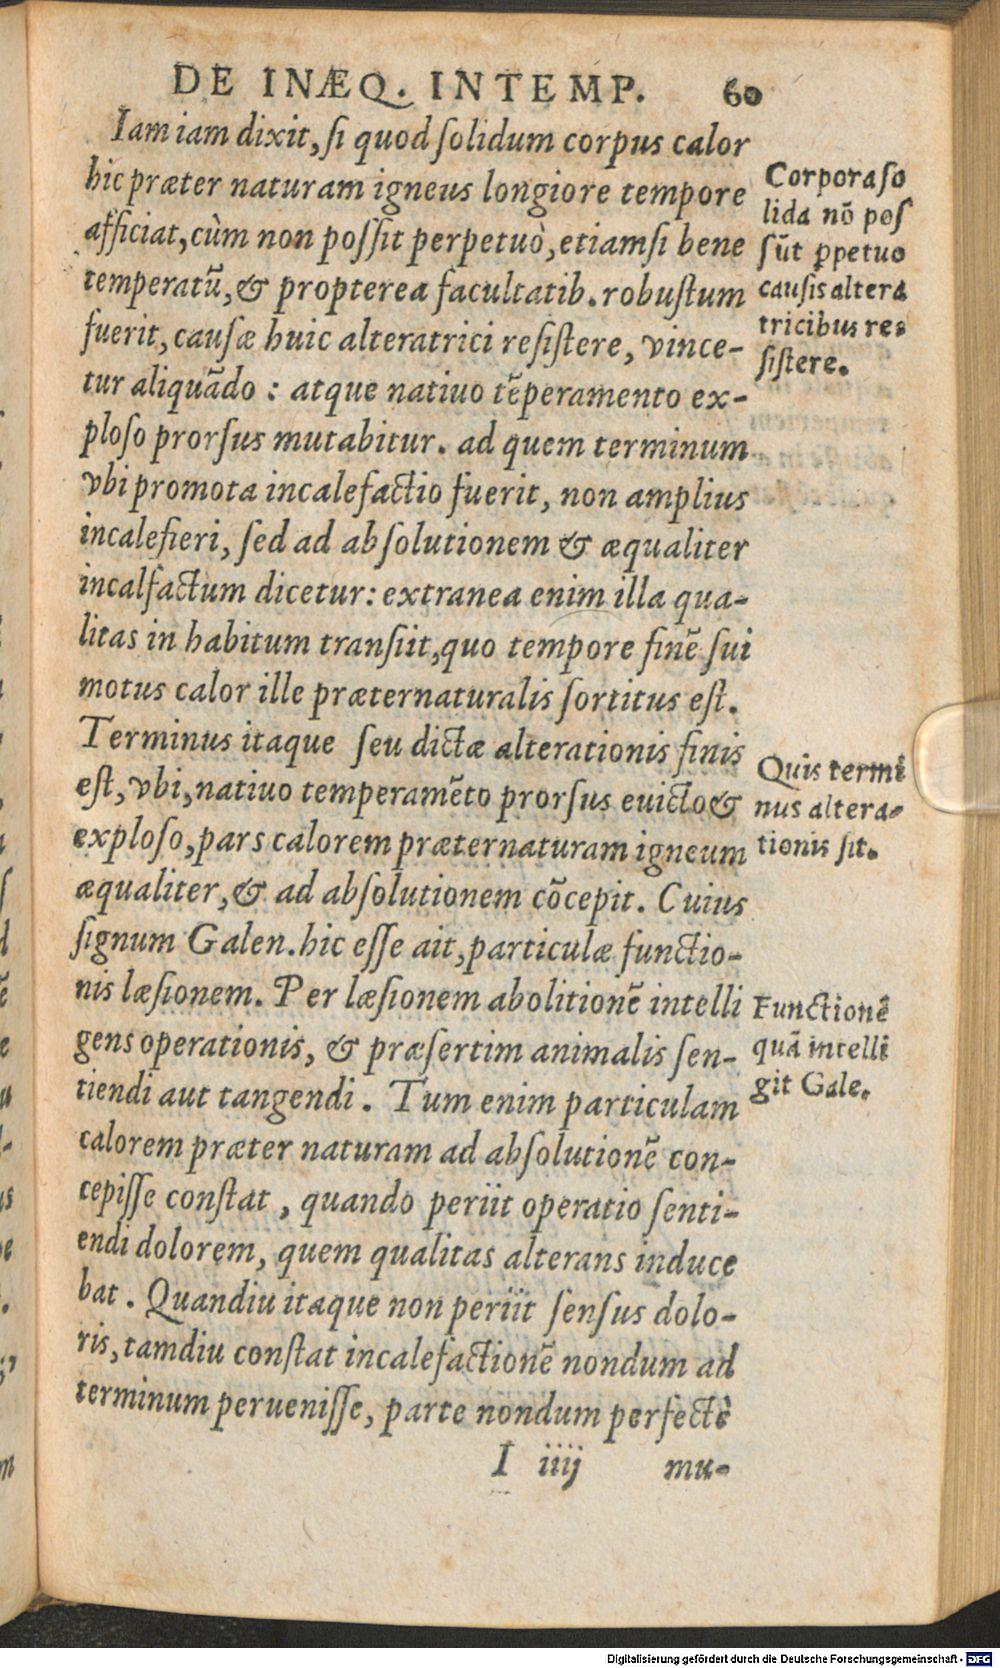 DE INÆQ. INTEMP. 60
Iam iam dixit, ſi quod ſolidum corpus calor
hic præter naturam igneus longiore tempore
afficiat, cùm non poſſit perpetuò, etiamſi bene
temperatũ, & propterea facultatib. robuſtum
fuerit, cauſæ huic alteratrici reſiſtere, vince-
tur aliquãdo : atque natiuo tẽperamento ex-
ploſo prorſus mutabitur. ad quem terminum
vbi promota incalefactio fuerit, non amplius
incalefieri, ſed ad abſolutionem & æqualiter
incalfactum dicetur: extranea enim illa qua-
litas in habitum tranſiit, quo tempore finẽ ſui
motus calor ille præternaturalis ſortitus eſt.
Terminus itaque ſeu dictæ alterationis finis
eſt, vbi, natiuo temperamẽto prorſus euicto &
exploſo, pars calorem præternaturam igneum
æqualiter, & ad abſolutionem cõcepit. Cuius
ſignum Galen. hic eſſe ait, particulæ functio-
nis læſionem. Per læſionem abolitionẽ intelli
gens operationis, & præſertim animalis ſen-
tiendi aut tangendi. Tum enim particulam
calorem præter naturam ad abſolutionẽ con-
cepiſſe conſtat, quando periit operatio ſenti-
endi dolorem, quem qualitas alterans induce
bat. Quandiu itaque non periit ſenſus dolo-
ris, tamdiu conſtat incalefactionẽ nondum ad
terminum perueniſſe, parte nondum perfectè
I iiij mu-
Corpora ſo
lida nõ poſ
ſũt ꝑpetuo
cauſis altera
tricibus re-
ſiſtere.
Quis termi
nus altera-
tionis ſit.
Functionẽ
quã intelli
git Gale.
Digitalisierung gefördert durch die Deutsche Forschungsgemeinschaft - DFG